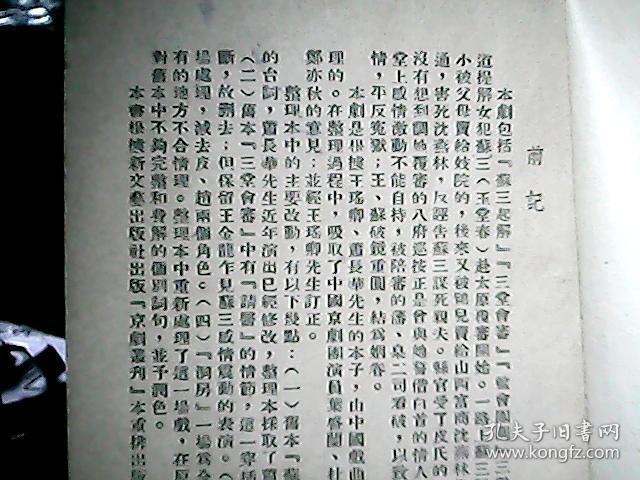 前記
本劇包括『蘇三起解』『三堂會審』『監會團
道提解女犯蘇三（玉堂春）赴太原復審開始。一路蘇三
小被父母賣給妓院的，後來又被鴇兒賣給山西富商沈燕林
通，害死沈燕林，反誣告蘇三謀死親夫。縣官受了皮氏的
沒有想到調她覆審的八府巡按正是曾與她誓偕白首的情人
堂上感情激動不能自持，被陪審的藩、臬二司看破，以致
情，平反冤獄；王、蘇破鏡重圓，結爲姻眷。
本劇是根據王瑤卿、蕭長華先生的本子，由中國戲曲
理的。在整理過程中，吸取了中國京劇團演員葉盛蘭、杜
鄭亦秋的意見；並經王瑤卿先生訂正。
整理本中的主要改動，有以下幾點：（一）舊本『蘇
的台詞，蕭長華先生近年演出已經修改，整理本採取了蕭
（二）舊本『三堂會審』中有『請醫』的情節，這一穿插
斷，故删去；但保留王金龍乍見蘇三感情震動的表演。（
場處理，減去皮、趙兩個角色。（四）『洞房』一場爲全
有的地方不合情理。整理本中重新處理了這一場戲，在原
對舊本中不夠完整和費解的個別詞句，並予潤色。
本書根據新文藝出版社出版『京劇叢刊』本重排出版
孔夫子旧书网
www.kongfz.com